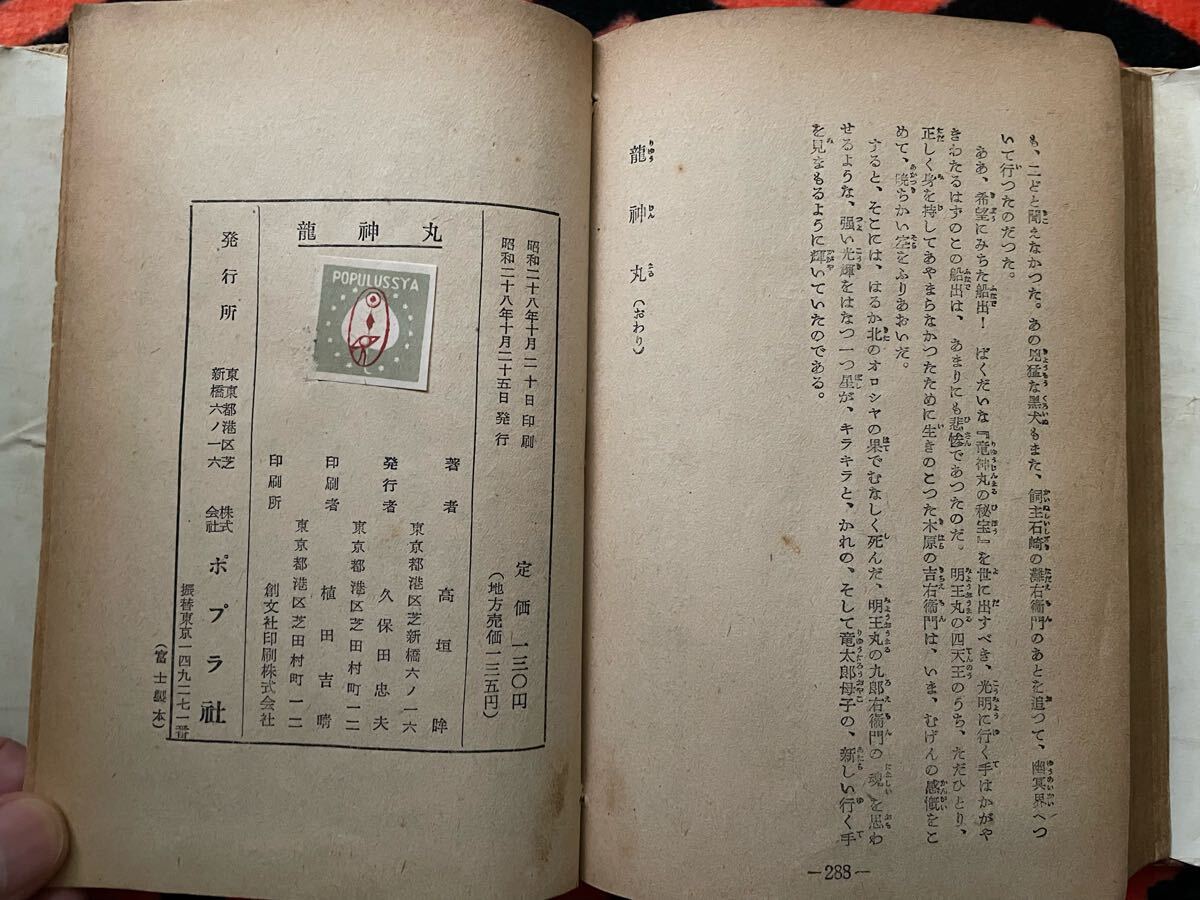 も、二どと聞えなかつた。あの兇猛な黒犬もまた、飼主石崎の灘右衛門のあとを追つて、幽冥界へつ
いて行つたのだつた。
ああ、希望にみちた船出！　ばくだいな『竜神丸の秘宝』を世に出すべき、光明に行く手はかがや
きわたるはずのこの船出は、あまりにも悲惨であつたのだ。明王丸の四天王のうち、ただひとり、
正しく身を持してあやまらなかつたために生きのこつた木原の吉右衛門は、いま、むげんの感慨をこ
めて、暁ちかい空をふりあおいだ。
すると、そこには、はるか北のオロシヤの果でむなしく死んだ、明王丸の九郎右衛門の魂を思わ
せるような、强い光輝をはなつ一つ星が、キラキラと、かれの、そして竜太郎母子の、新しい行く手
を見まもるように輝いていたのである。
龍神丸（おわり）
—288—
昭和二十八年十月二十日印刷
昭和二十八年十月二十五日発行
定価一三〇円
（地方売価一三五円）
龍神丸
POPULUSSYA
著者　高垣眸
東京都港区芝新橋六ノ一六
発行者　久保田忠夫
東京都港区芝田村町一二
印刷者　植田吉晴
東京都港区芝田村町一二
印刷所　創文社印刷株式会社
発行所
東京都港区芝
新橋六ノ一六
株式会社ポプラ社
振替東京一四九二七一番
（富士製本）